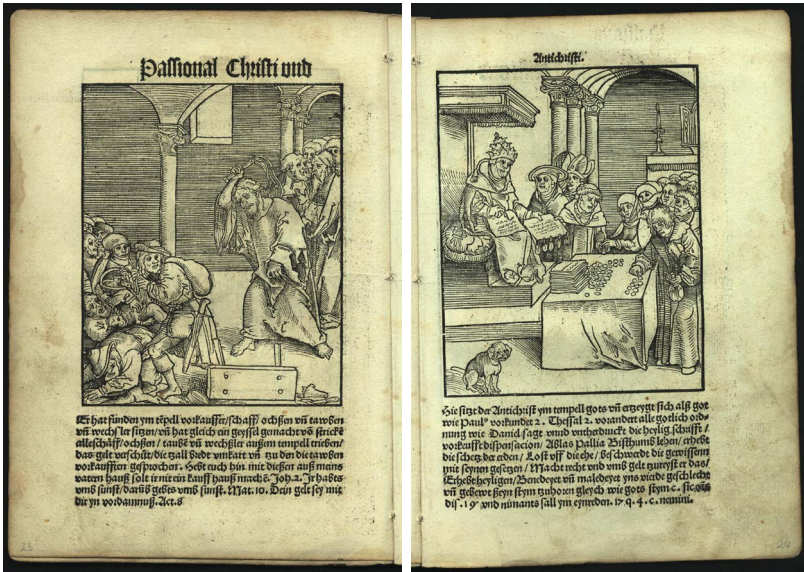 Passional Christi und
Er hat funden ym tēpell vorkauffer/schaff/ ochßen vñ tawben
vñ wechßler sitzen/ vñ hat gleich ein geyssel gemacht võ stricke
alle schäff/ ochßen/ taubē vñ wechßler außem tempell trieben/
das gelt verschüt/ die zall bredt umkart vñ zu den die tawben
vorkaufften gesprochen. Hebt euch hin mit dießen auß meins
vatern hauß solt ir nit ein kauff hauß machē. Joh. 2. Jr habts
umb sunst/ darūb gebts umb sunst. Mat. 10. Dein gelt sey mit
dir yn vordamnuß. Act. 8
23
Antichristi.
Hie sitzt der Antichrist ym tempell gots vñ ertzeygt sich alß got
wie Paulus vorkundet 2. Thessal 2. vorandert alle gotlich ord-
nung wie Daniel sagt unnd untherdruckt die heylig schrifft/
vorkeufft dispensacion/ Ablas Pallia Bisthumb lehen/ erhebt
die schetz der erden/ Lost uff die ehe/ beschwerdt die gewissenn
mit seynen gesetzen/ Macht recht und umb gelt zureyst er das/
Erhebt heyligen/ Benedeyet vñ maledeyet yns vierde geschlecht
vñ gebewt ßeyn stym tzuhoren gleych wie gots stym c. sic ois
dis. 19 und nimants sall ym eynreden. 17 q. 4. c. nemini.
24